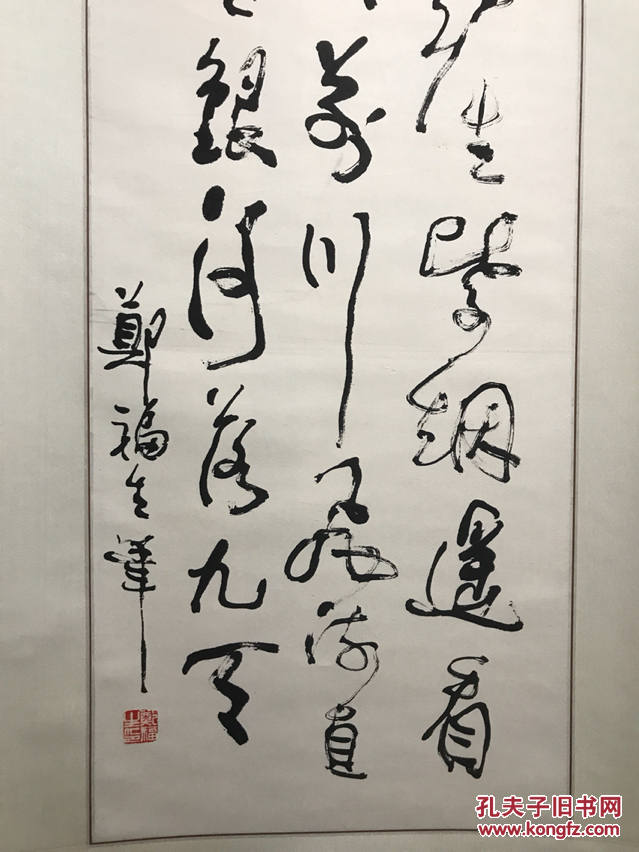 生紫烟遥看
前川飛流直
銀河落九天
鄭福生筆
孔夫子旧书网
www.kongfz.com